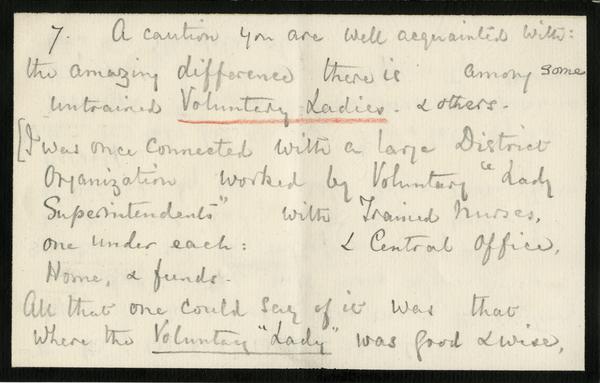 7. A caution you are well acquainted with:
the amazing difference there is among some
untrained Voluntary Ladies. & others.
[I was once connected with a large District
Organization worked by Voluntary "Lady
Superintendents" with Trained Nurses,
one under each: & Central Office,
Home, & funds.
All that one could say of it was that
where the Voluntary "Lady" was good & wise,